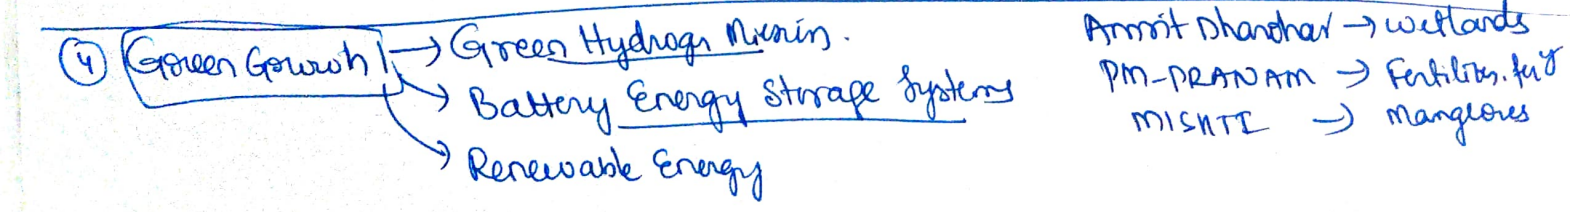 4 Green Growth → Green Hydrogn Missin.
→ Battery Energy Storage Systems
→ Renewable Energy
Amrit Dharohar → wetlands
PM-PRANAM → Fertilizer.
MISHTI → Mangroves